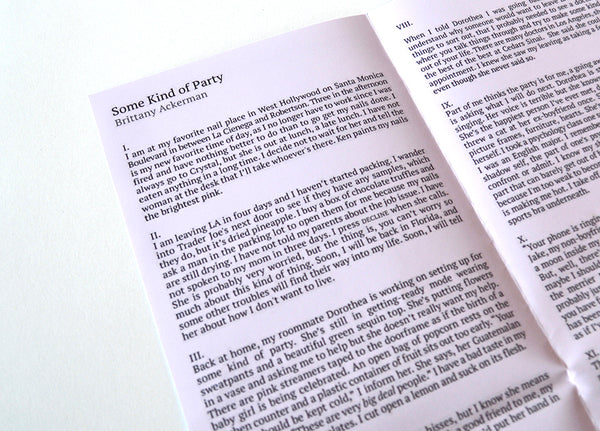 Some Kind of Party
Brittany Ackerman
I.
I am at my favorite nail place in West Hollywood on Santa Monica
Boulevard in between La Cienega and Robertson. Three in the afternoon
is my new favorite time of day, as I no longer have to work since I was
fired and have nothing better to do than to go get my nails done. I
always go to Crystal, but she is out at lunch, a late lunch. I have not
eaten anything in a long time. I decide not to wait for her and tell the
woman at the desk that I'll take whoever's there. Ken paints my nails
the brightest pink.
II.
I am leaving LA in four days and I haven't started packing. I wander
into Trader Joe's next door to see if they have any samples, which
they do, but it's dried pineapple. I buy a box of chocolate truffles and
ask a man in the parking lot to open them for me because my nails
are still drying. I have not told my parents about the job issue. I have
not spoken to my mom in three days. I press DECLINE when she calls.
She is probably very worried, but the thing is, you can't worry so
much about this kind of thing. Soon, I will be back in Florida, and
some other troubles will find their way into my life. Soon, I will tell
her about how I don't want to live.
III.
Back at home, my roommate Dorothea is working on setting up for
some kind of party. She's still in getting-ready mode wearing
sweatpants and a beautiful green sequin top. She's putting flowers
in a vase and asking me to help but she doesn't really want my help.
There are pink streamers taped to the doorframe as if the birth of a
baby girl is being celebrated. An open bag of popcorn rests on the
kitchen counter and a plastic container of fruit sits out too early. "Your
should be kept cold," I inform her. She says, her Guatemalan
"These are very big deal people." I have a bad taste in my
plates. I cut open a lemon and suck on its flesh.
hisses, but I know she means
a good friend to me, my
put her hand in
VIII.
When I told Dorothea I was going
understand why someone would want to leave
things to sort out, that I probably needed to see a
where you talk things through and try to make some
out of your life. There are many doctors in Los Angeles, she
the best of the best at Cedars Sinai. She said she could
appointment. I knew she saw my leaving as taking a
even though she never said so.
IX.
Part of me thinks the party is for me, a going away
is asking what I will do next. Dorothea is
singing. Her voice is terrible but she knows
She's the happiest person I've ever
threw a cat at her ex-boyfriend once,
picture frames, another's heart. She
herself. I took a psychology class
I was an English major. I remember
shadow self, the part of one's
confront or admit. I know my
part that can barely get out of
because I'm too weak to be
is making me test. I take off
sports bra underneath.
X.
"Your phone is ringing
lake, my non-boyfriend
a moon inside my
But, well, there
maybe I should
the merrier
probably
has been
it was
as if I